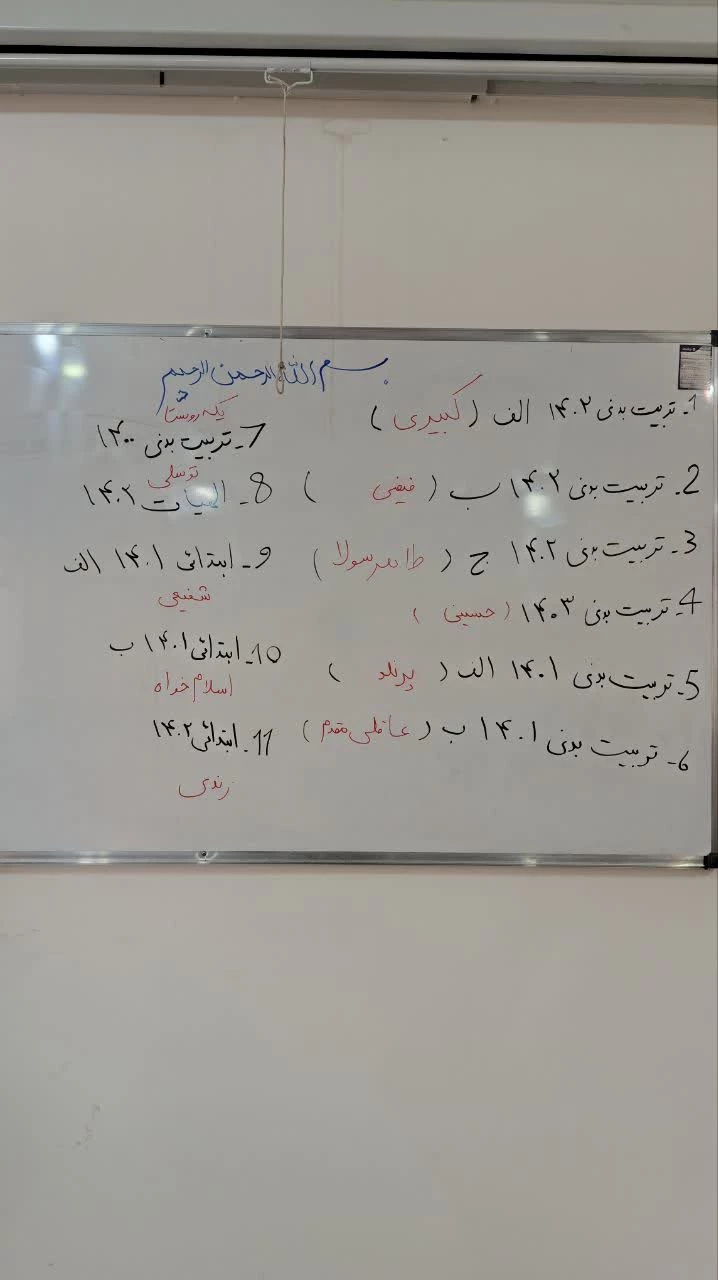 بسم الله الرحمن الرحیم
1ـ تربیت بدنی ۱۴۰۲ الف (کبیری)
2ـ تربیت بدنی ۱۴۰۲ ب (فیضی)
3ـ تربیت بدنی ۱۴۰۲ ج (طاهر سولا)
4ـ تربیت بدنی ۱۴۰۳ (حسینی)
5ـ تربیت بدنی ۱۴۰۱ الف (پرنلو)
6ـ تربیت بدنی ۱۴۰۱ ب (عاقلی مقدم)
یکه روستا
7ـ تربیت بدنی ۱۴۰۰
توسلی
8ـ الهیات ۱۴۰۲
9ـ ابتدائی ۱۴۰۱ الف
شفیعی
10ـ ابتدائی ۱۴۰۱ ب
اسلام خواه
11ـ ابتدائی ۱۴۰۲
زندی